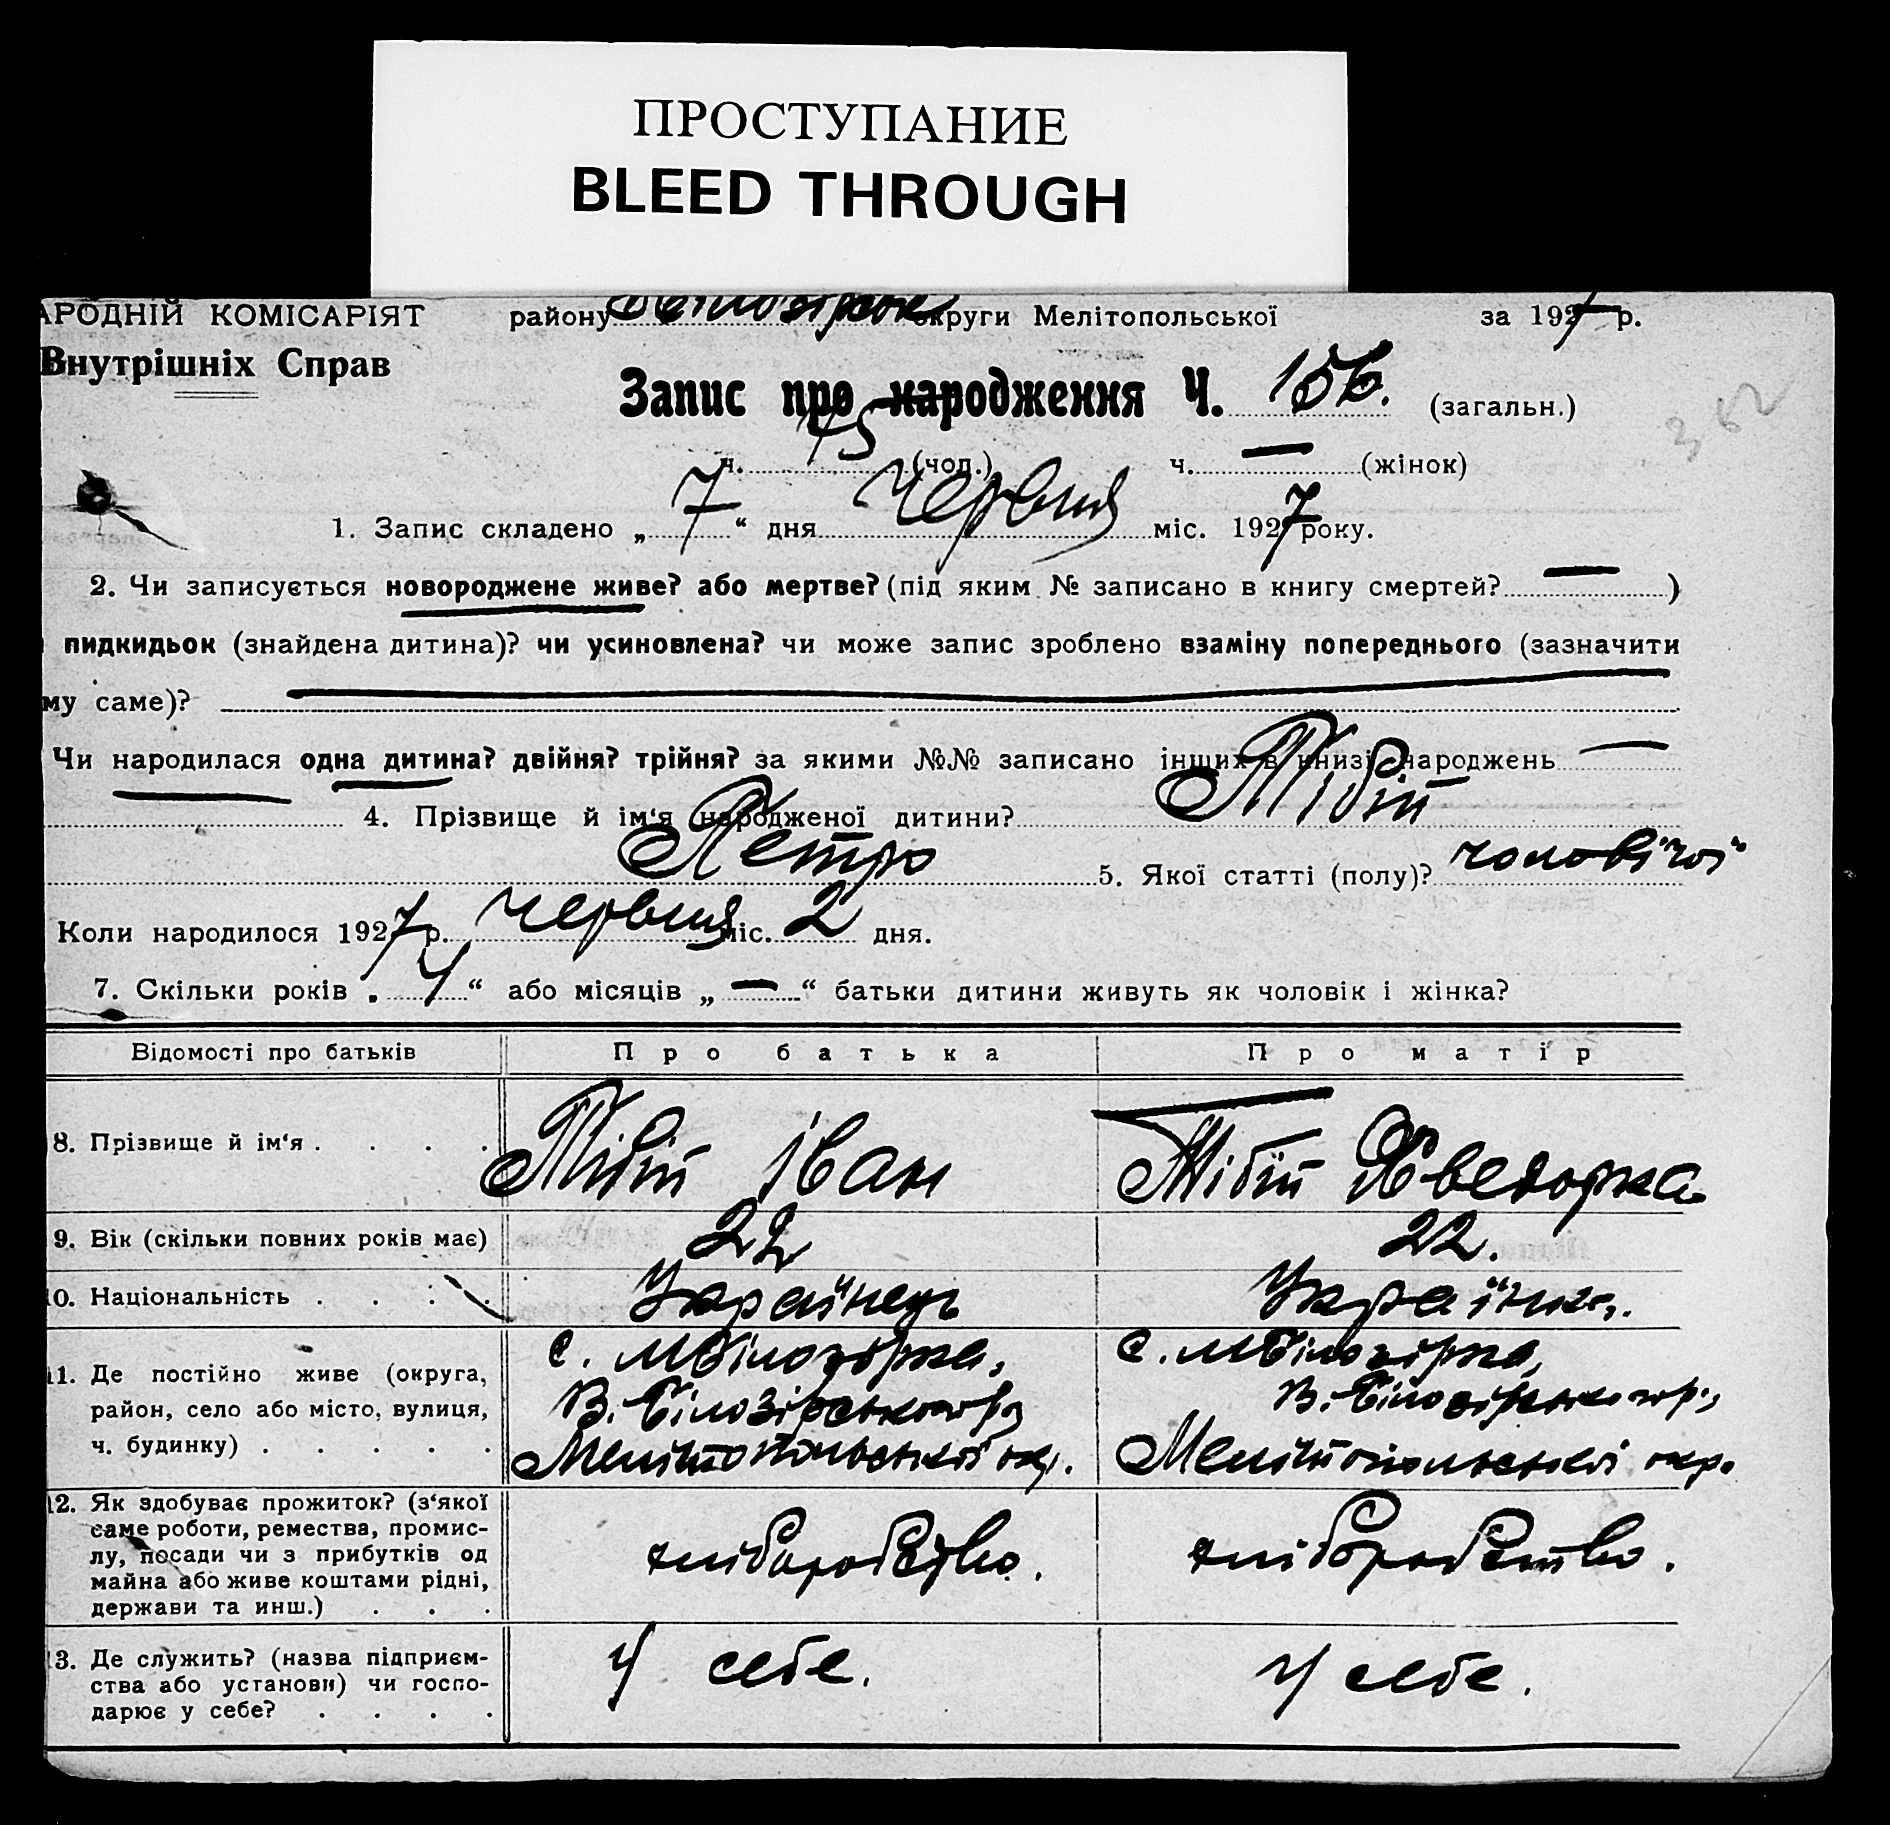 ПРОСТУПАНИЕ
BLEED THROUGH
АРОДНІЙ КОМІСАРІЯТ району округи Мелітопольської за 1927 р.
Внутрішніх Справ
Запис про народження Ч. 156. (загальн.)
362
ч. 75 (чол.) ч. — (жінок)
1. Запис складено „ 7 “ дня Червня міс. 1927 року.
2. Чи записується новороджене живе? або мертве? (під яким № записано в книгу смертей? — )
пидкидьок (знайдена дитина)? чи усиновлена? чи може запис зроблено взаміну попереднього (зазначити
му саме)? —
Чи народилася одна дитина? двійня? трійня? за якими №№ записано інших в книзі народжень —
4. Прізвище й ім‘я народженої дитини? Тібіт
Петро 5. Якої статті (полу)? чоловічої
Коли народилося 1927 р. Червня міс. 2 дня.
7. Скільки років „ 4 “ або місяців „ — “ батьки дитини живуть як чоловік і жінка?
Відомості про батьків Про батька Про матір
8. Прізвище й ім‘я . . . . Тібіт Іван Тібіт
9. Вік (скільки повних років має) 22 22.
0. Національність . . . . Українець Українка.
11. Де постійно живе (округа, с. МБілозірка, с. МБілозірка,
район, село або місто, вулиця, В.-Білозірського р, В.-Білозірського р.,
ч. будинку) . . . . . Мелітопольської окр. Мелітопольської окр.
12. Як здобуває прожиток? (з‘якої
саме роботи, ремества, промис-
лу, посади чи з прибутків од хліборобство. хліборобство.
майна або живе коштами рідні,
держави та инш.) . . .
13. Де служить? (назва підприєм-
ства або установи) чи госпо- У себе. У себе.
дарює у себе? . . . .